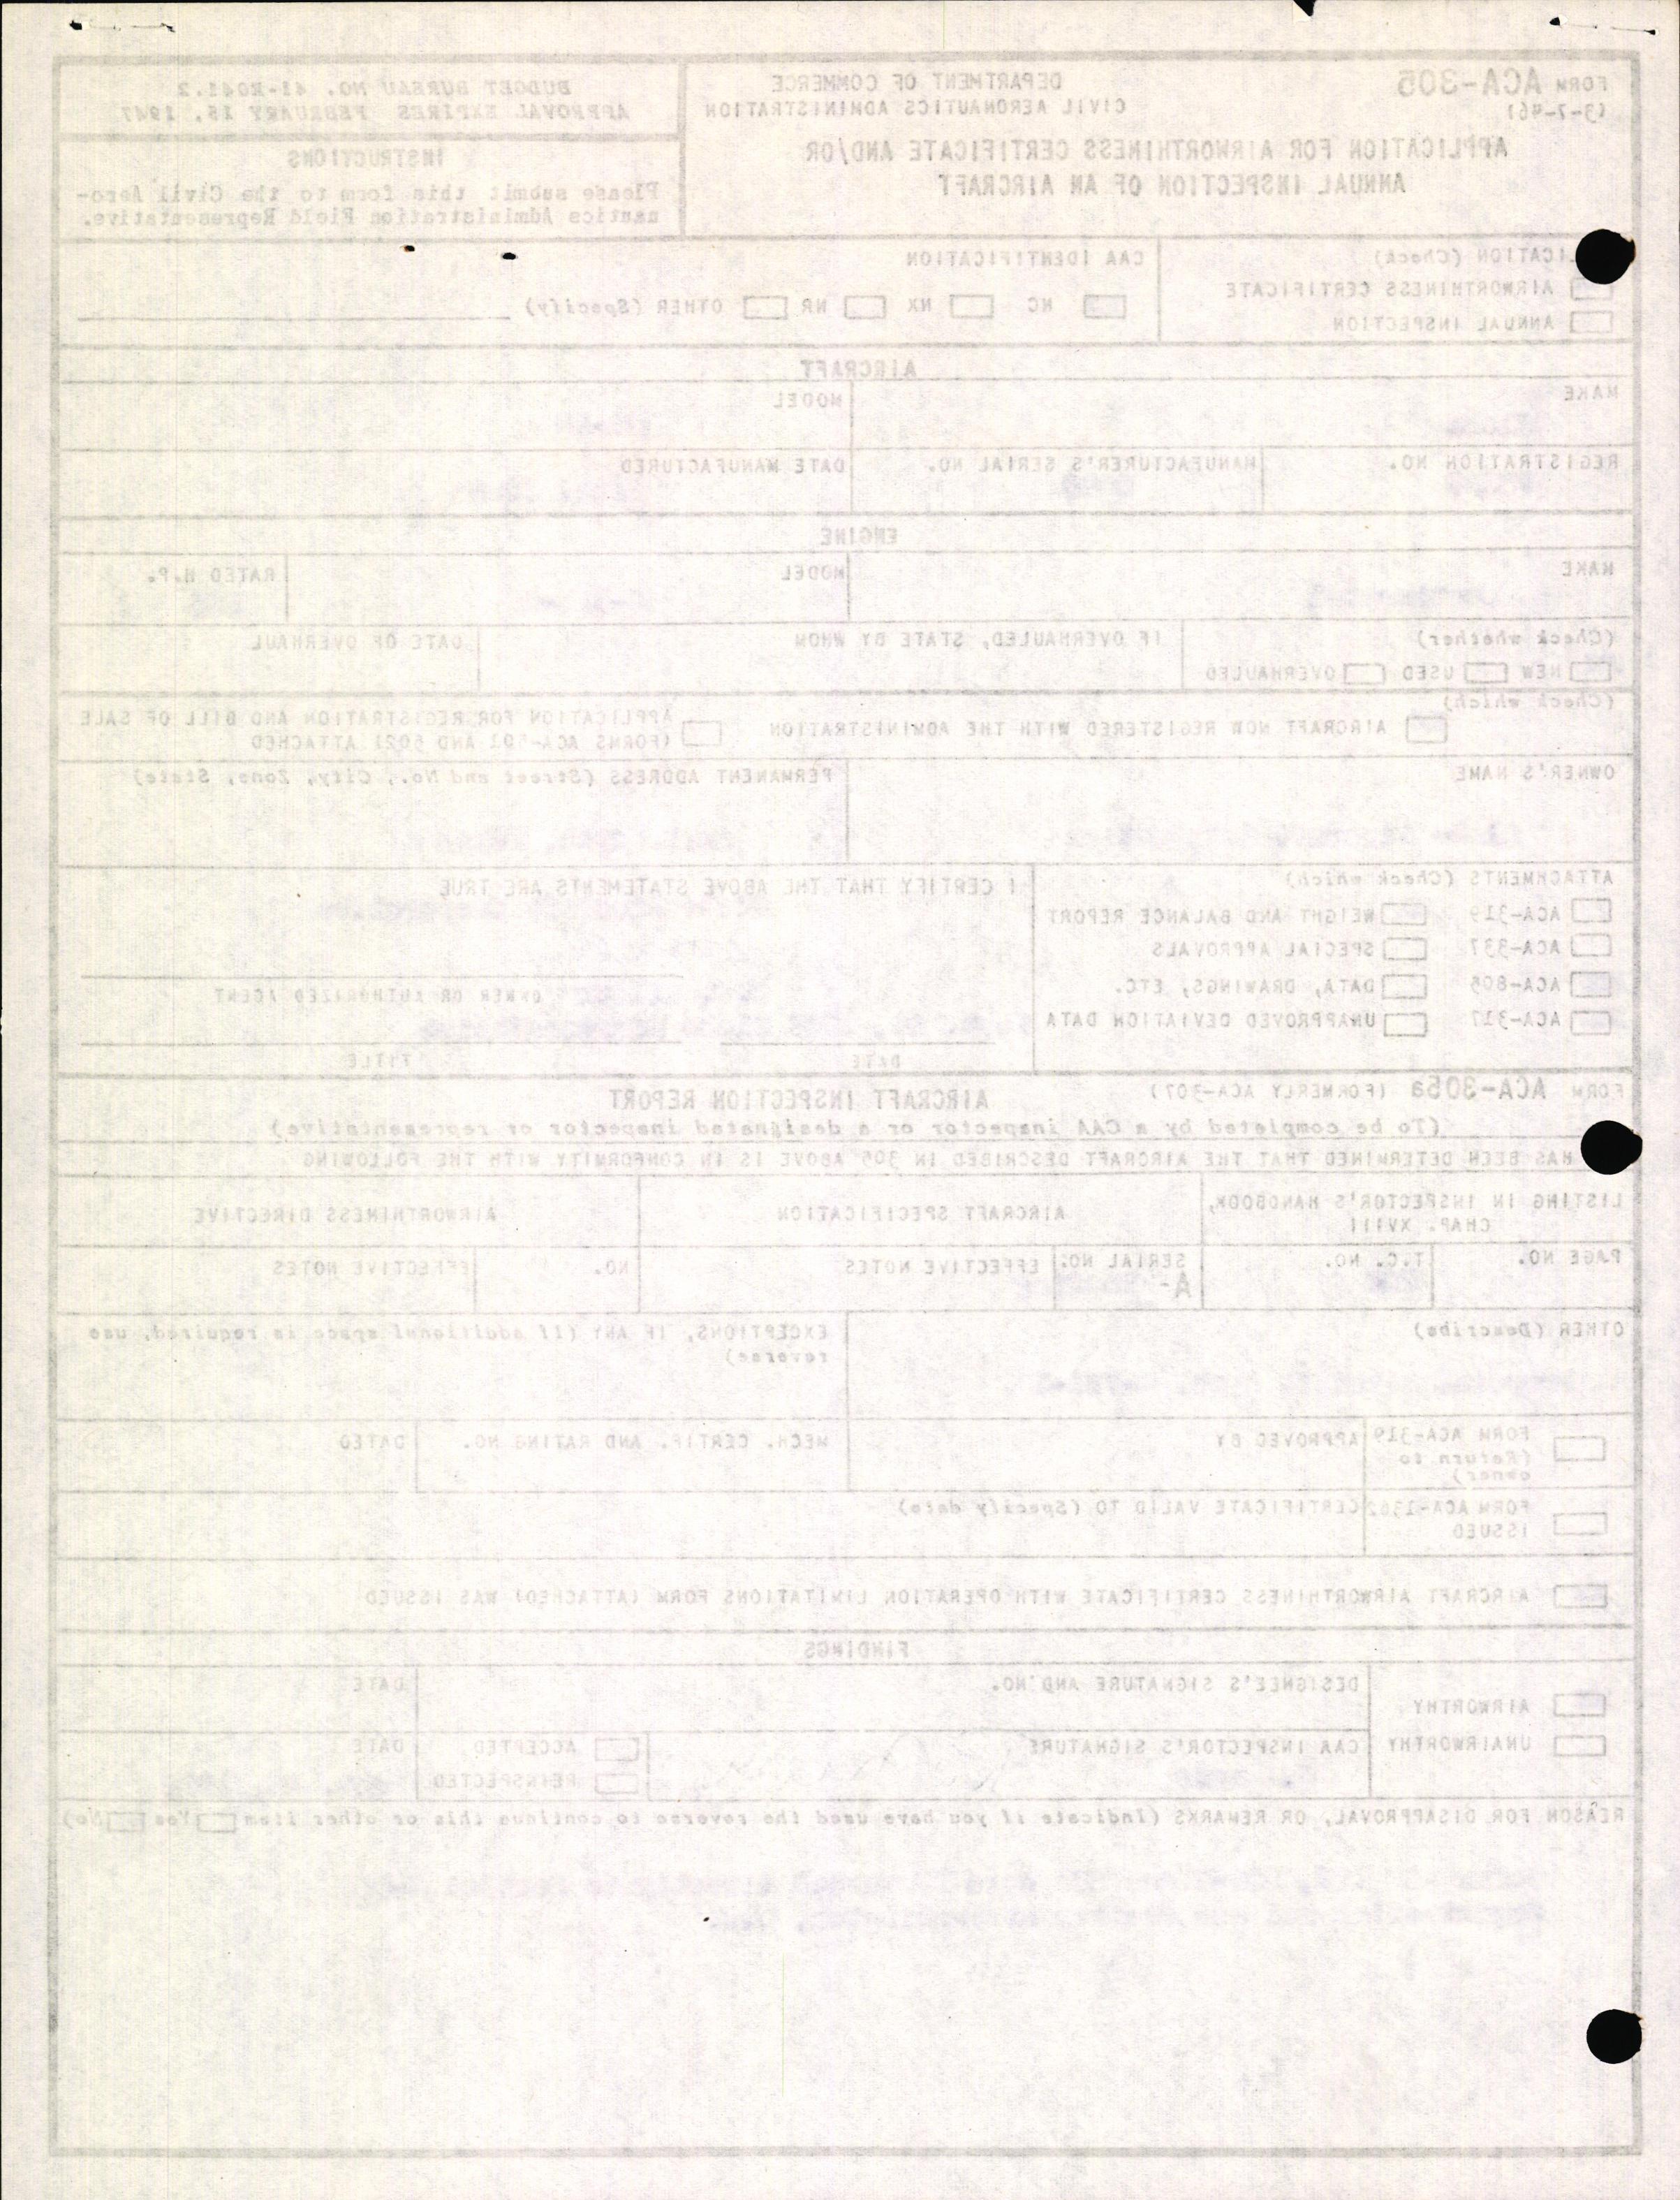 FORM ACA-305
(3-7-46)
DEPARTMENT OF COMMERCE
CIVIL AERONAUTICS ADMINISTRATION
APPLICATION FOR AIRWORTHINESS CERTIFICATE AND/OR
ANNUAL INSPECTION OF AN AIRCRAFT
BUDGET BUREAU NO. 41-R041.2
APPROVAL EXPIRES FEBRUARY 15, 1947
INSTRUCTIONS
Please submit this form to the Civil Aero-
nautics Administration Field Representative.
LICATION (Check)
AIRWORTHINESS CERTIFICATE
ANNUAL INSPECTION
CAA IDENTIFICATION
NC NX NR OTHER (Specify)
AIRCRAFT
MAKE
MODEL
REGISTRATION NO.
MANUFACTURER'S SERIAL NO.
DATE MANUFACTURED
ENGINE
MAKE
MODEL
RATED H.P.
(Check whether)
NEW USED OVERHAULED
IF OVERHAULED, STATE BY WHOM
DATE OF OVERHAUL
(Check which)
AIRCRAFT NOW REGISTERED WITH THE ADMINISTRATION
APPLICATION FOR REGISTRATION AND BILL OF SALE
(FORMS ACA-501 AND 502) ATTACHED
OWNER'S NAME
PERMANENT ADDRESS (Street and No., City, Zone, State)
ATTACHMENTS (Check which)
ACA-319 WEIGHT AND BALANCE REPORT
ACA-337 SPECIAL APPROVALS
ACA-805 DATA, DRAWINGS, ETC.
ACA-317 UNAPPROVED DEVIATION DATA
I CERTIFY THAT THE ABOVE STATEMENTS ARE TRUE
OWNER OR AUTHORIZED AGENT
DATE
TITLE
FORM ACA-305a (FORMERLY ACA-307)
AIRCRAFT INSPECTION REPORT
(To be completed by a CAA inspector or a designated inspector or representative)
HAS BEEN DETERMINED THAT THE AIRCRAFT DESCRIBED IN 305 ABOVE IS IN CONFORMITY WITH THE FOLLOWING
LISTING IN INSPECTOR'S HANDBOOK,
CHAP. XVIII
AIRCRAFT SPECIFICATION
AIRWORTHINESS DIRECTIVE
PAGE NO.
T.C. NO.
SERIAL NO.
A-
EFFECTIVE NOTES
NO.
EFFECTIVE NOTES
OTHER (Describe)
EXCEPTIONS, IF ANY (If additional space is required, use
reverse)
FORM ACA-319
(Return to
owner)
APPROVED BY
MECH. CERTIF. AND RATING NO.
DATED
FORM ACA-1362
ISSUED
CERTIFICATE VALID TO (Specify date)
AIRCRAFT AIRWORTHINESS CERTIFICATE WITH OPERATION LIMITATIONS FORM (ATTACHED) WAS ISSUED
FINDINGS
AIRWORTHY
UNAIRWORTHY
DESIGNEE'S SIGNATURE AND NO.
DATE
CAA INSPECTOR'S SIGNATURE
ACCEPTED
REINSPECTED
DATE
REASON FOR DISAPPROVAL, OR REMARKS (Indicate if you have used the reverse to continue this or other item Yes No)